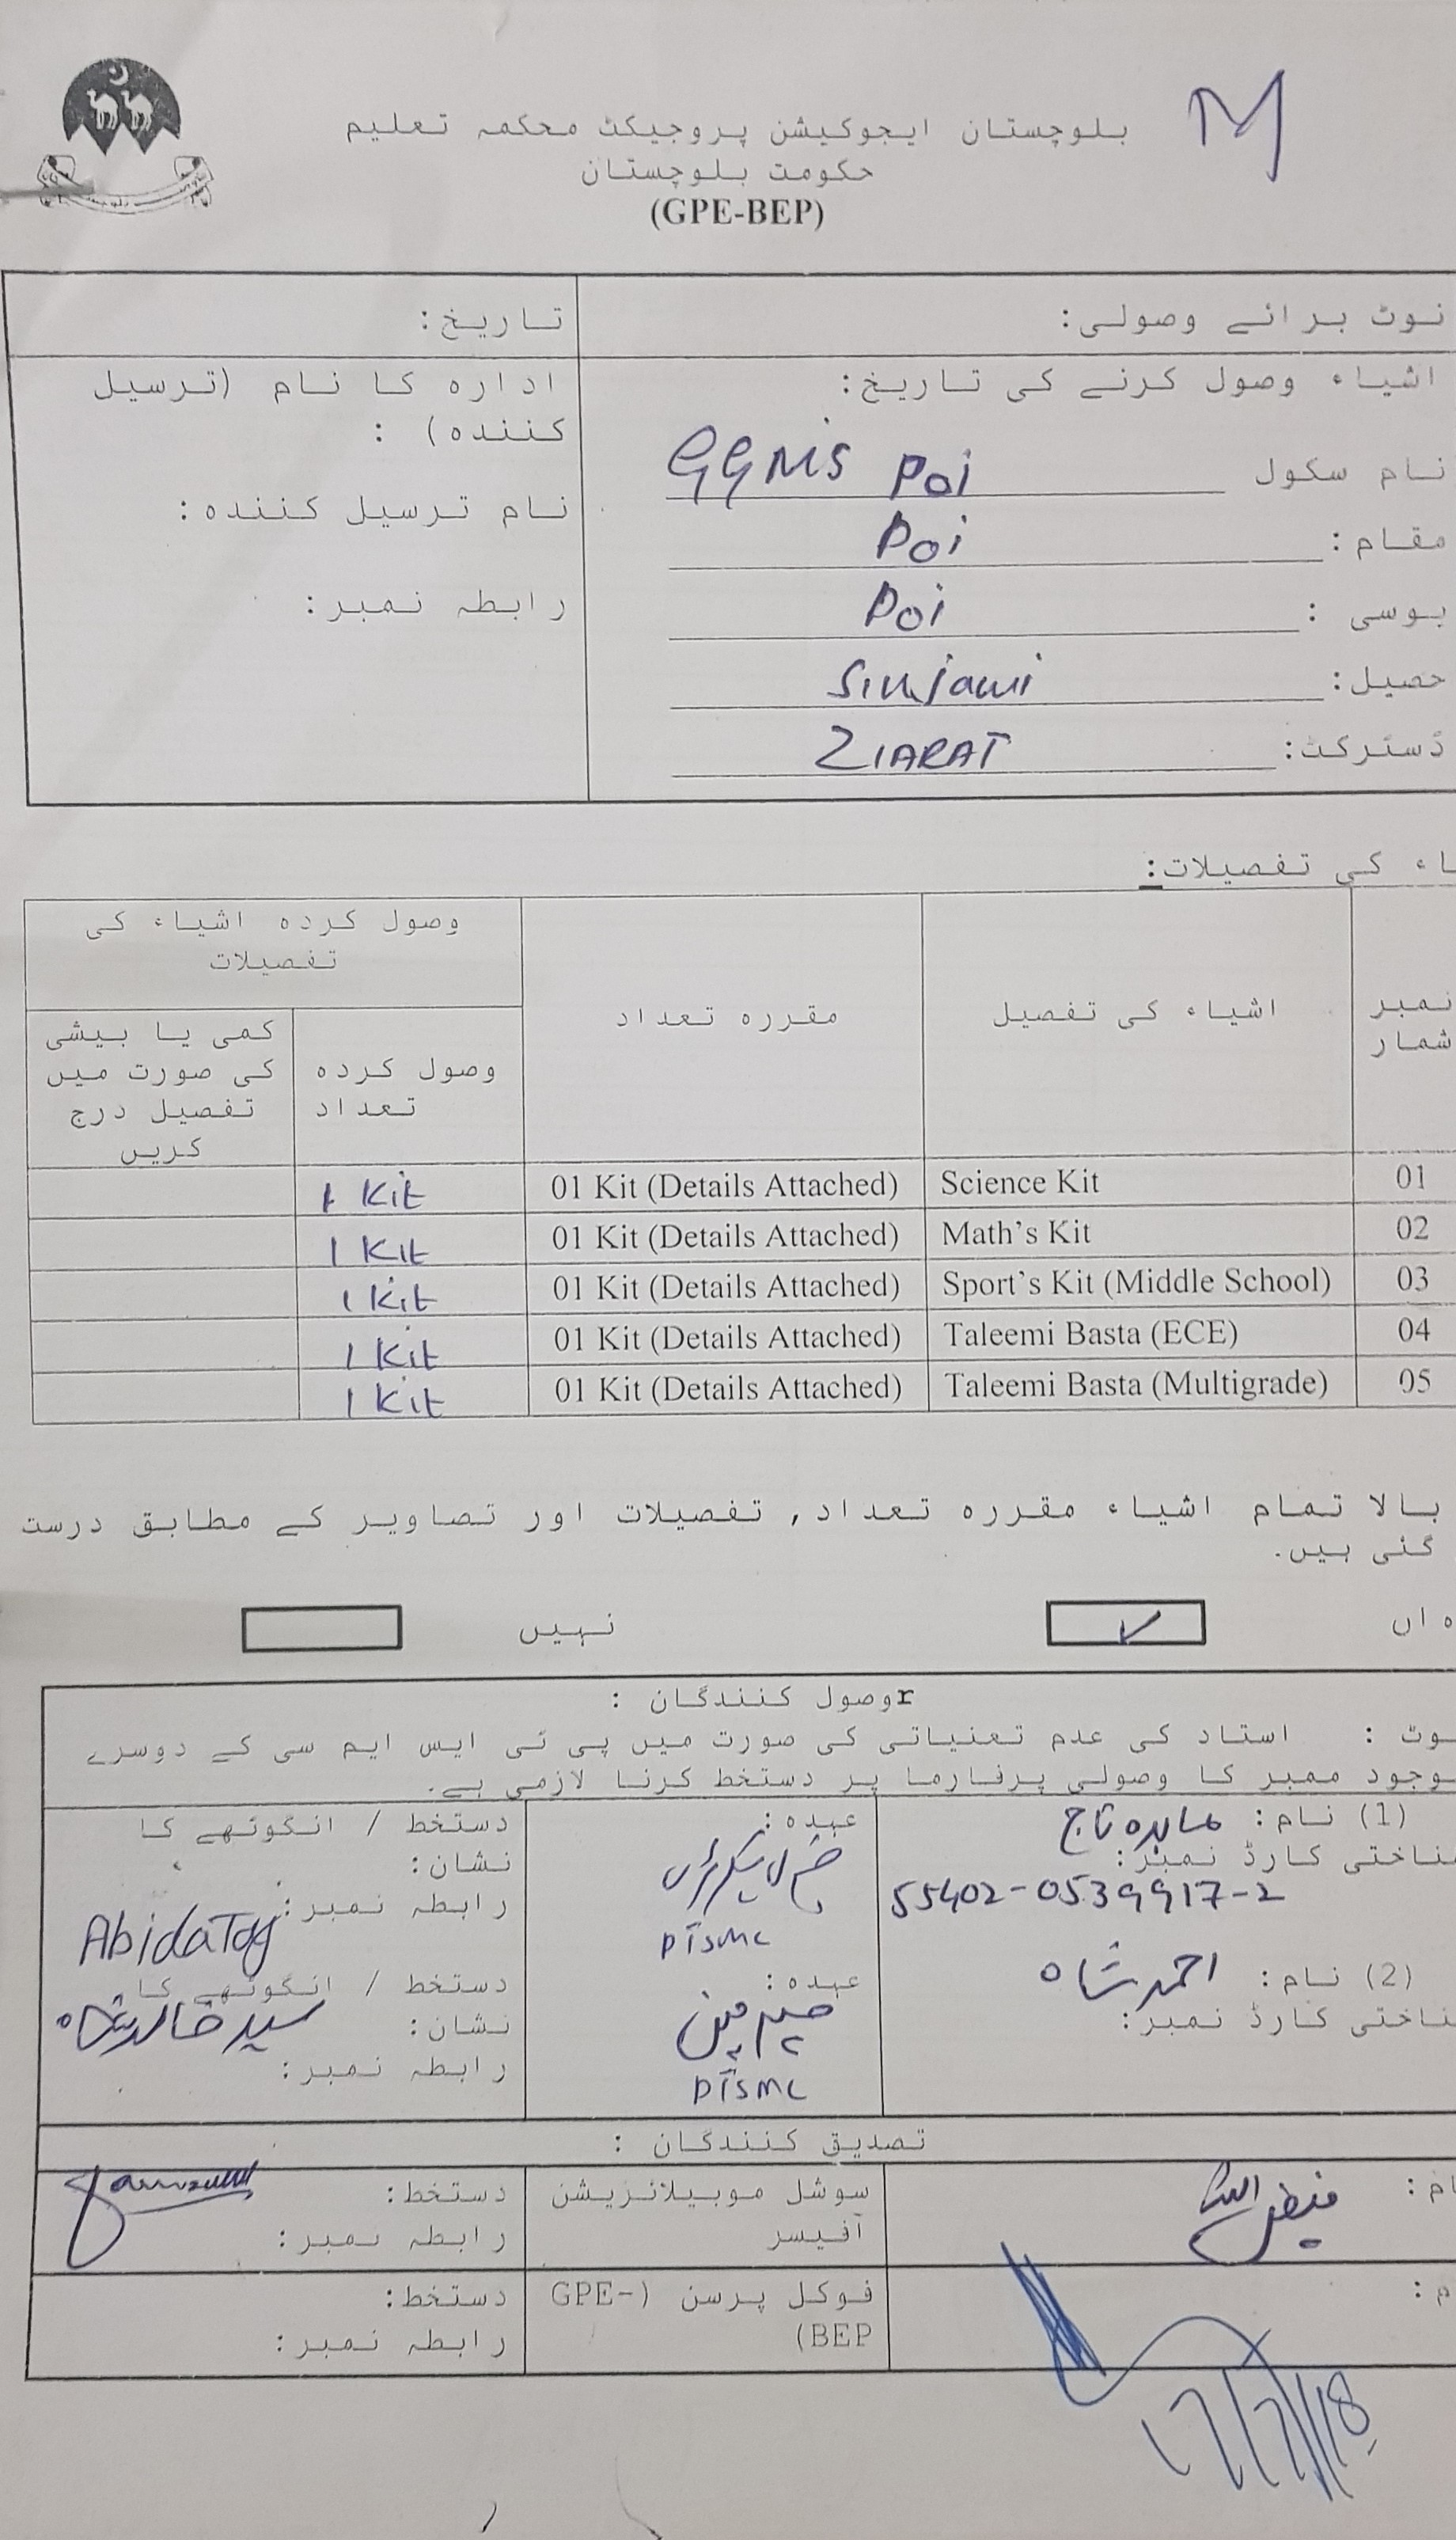 M
بلوچستان ایجوکیشن پروجیکٹ محکمہ تعلیم
حکومت بلوچستان
(GPE-BEP)
نوٹ برائے وصولی:
تاریخ:
اشیاء وصول کرنے کی تاریخ:
نام سکول GGMS Poi
مقام: Poi
یوسی : Poi
حصیل: Sinjawi
ڈسٹرکٹ: ZIARAT
ادارہ کا نام (ترسیل
کنندہ) :
نام ترسیل کنندہ:
رابطہ نمبر:
اء کی تفصیلات:
نمبر شمار
اشیاء کی تفصیل
مقررہ تعداد
وصول کردہ اشیاء کی تفصیلات
وصول کردہ تعداد
کمی یا بیشی کی صورت میں تفصیل درج کریں
01 Science Kit 01 Kit (Details Attached) 1 Kit
02 Math's Kit 01 Kit (Details Attached) 1 Kit
03 Sport's Kit (Middle School) 01 Kit (Details Attached) 1 Kit
04 Taleemi Basta (ECE) 01 Kit (Details Attached) 1 Kit
05 Taleemi Basta (Multigrade) 01 Kit (Details Attached) 1 Kit
بالا تمام اشیاء مقررہ تعداد, تفصیلات اور تصاویر کے مطابق درست
گئی ہیں.
ہاں ✓ نہیں
rوصول کنندگان :
وٹ : استاد کی عدم تعنیاتی کی صورت میں پی ٹی ایس ایم سی کے دوسرے
وجود ممبر کا وصولی پرفارما پر دستخط کرنا لازمی ہے.
(1) نام: عابدہ تاج
ناختی کارڈ نمبر:
55402-0539917-2
عہدہ:
جنرل سیکرٹری
PTSMC
دستخط / انگوٹھے کا
نشان:
رابطہ نمبر:
Abida Taj
(2) نام: احمد شاہ
ناختی کارڈ نمبر:
عہدہ:
چیئرمین
PTSMC
دستخط / انگوٹھے کا
نشان: سید خالد شاہ
رابطہ نمبر:
تصدیق کنندگان :
ام: فیض اللہ
سوشل موبیلائزیشن
آفیسر
دستخط:
رابطہ نمبر:
م:
فوکل پرسن (GPE-
BEP)
دستخط:
رابطہ نمبر: